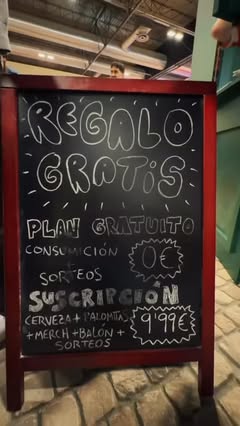 REGALO
GRATIS
PLAN GRATUITO
CONSUMICIÓN
0€
SORTEOS
SUSCRIPCIÓN
CERVEZA + PALOMITAS
+ MERCH + BALÓN +
SORTEOS
9'99€